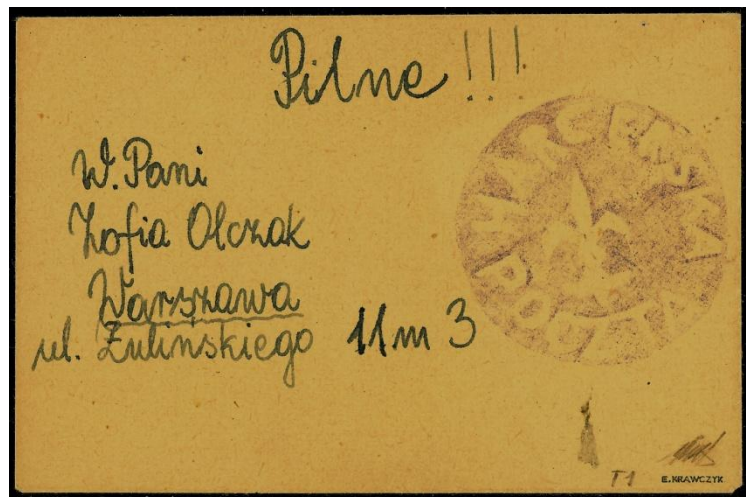 Pilne !!!
W. Pani
Zofia Olczak
Warszawa
ul. Żulińskiego 11 m 3
HARCERSKA POCZTA
T1
E. KRAWCZYK